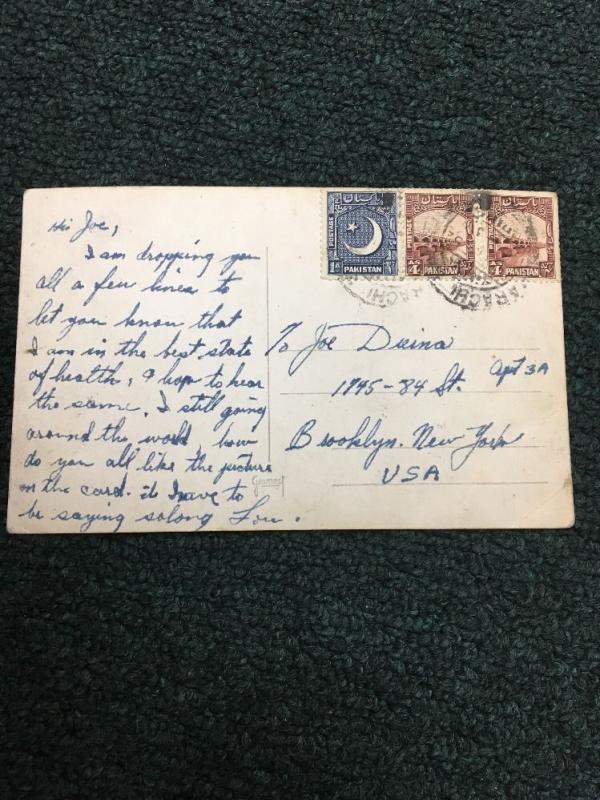 Hi Joe,
I am dropping you
all a few lines to
let you know that
I am in the best state
of health, I hop to hear
the same. I still going
around the world, how
do you all like the picture
on the card. it I have to
be saying solong Lou.
To Joe
1795-84 St. Apt 3A
Brooklyn. New York
USA
POSTAGE
PAKISTAN
پاکستان
POSTAGE
پاکستان
4 AS
PAKISTAN
POSTAGE
پاکستان
4 AS
PAKISTAN
KARACHI